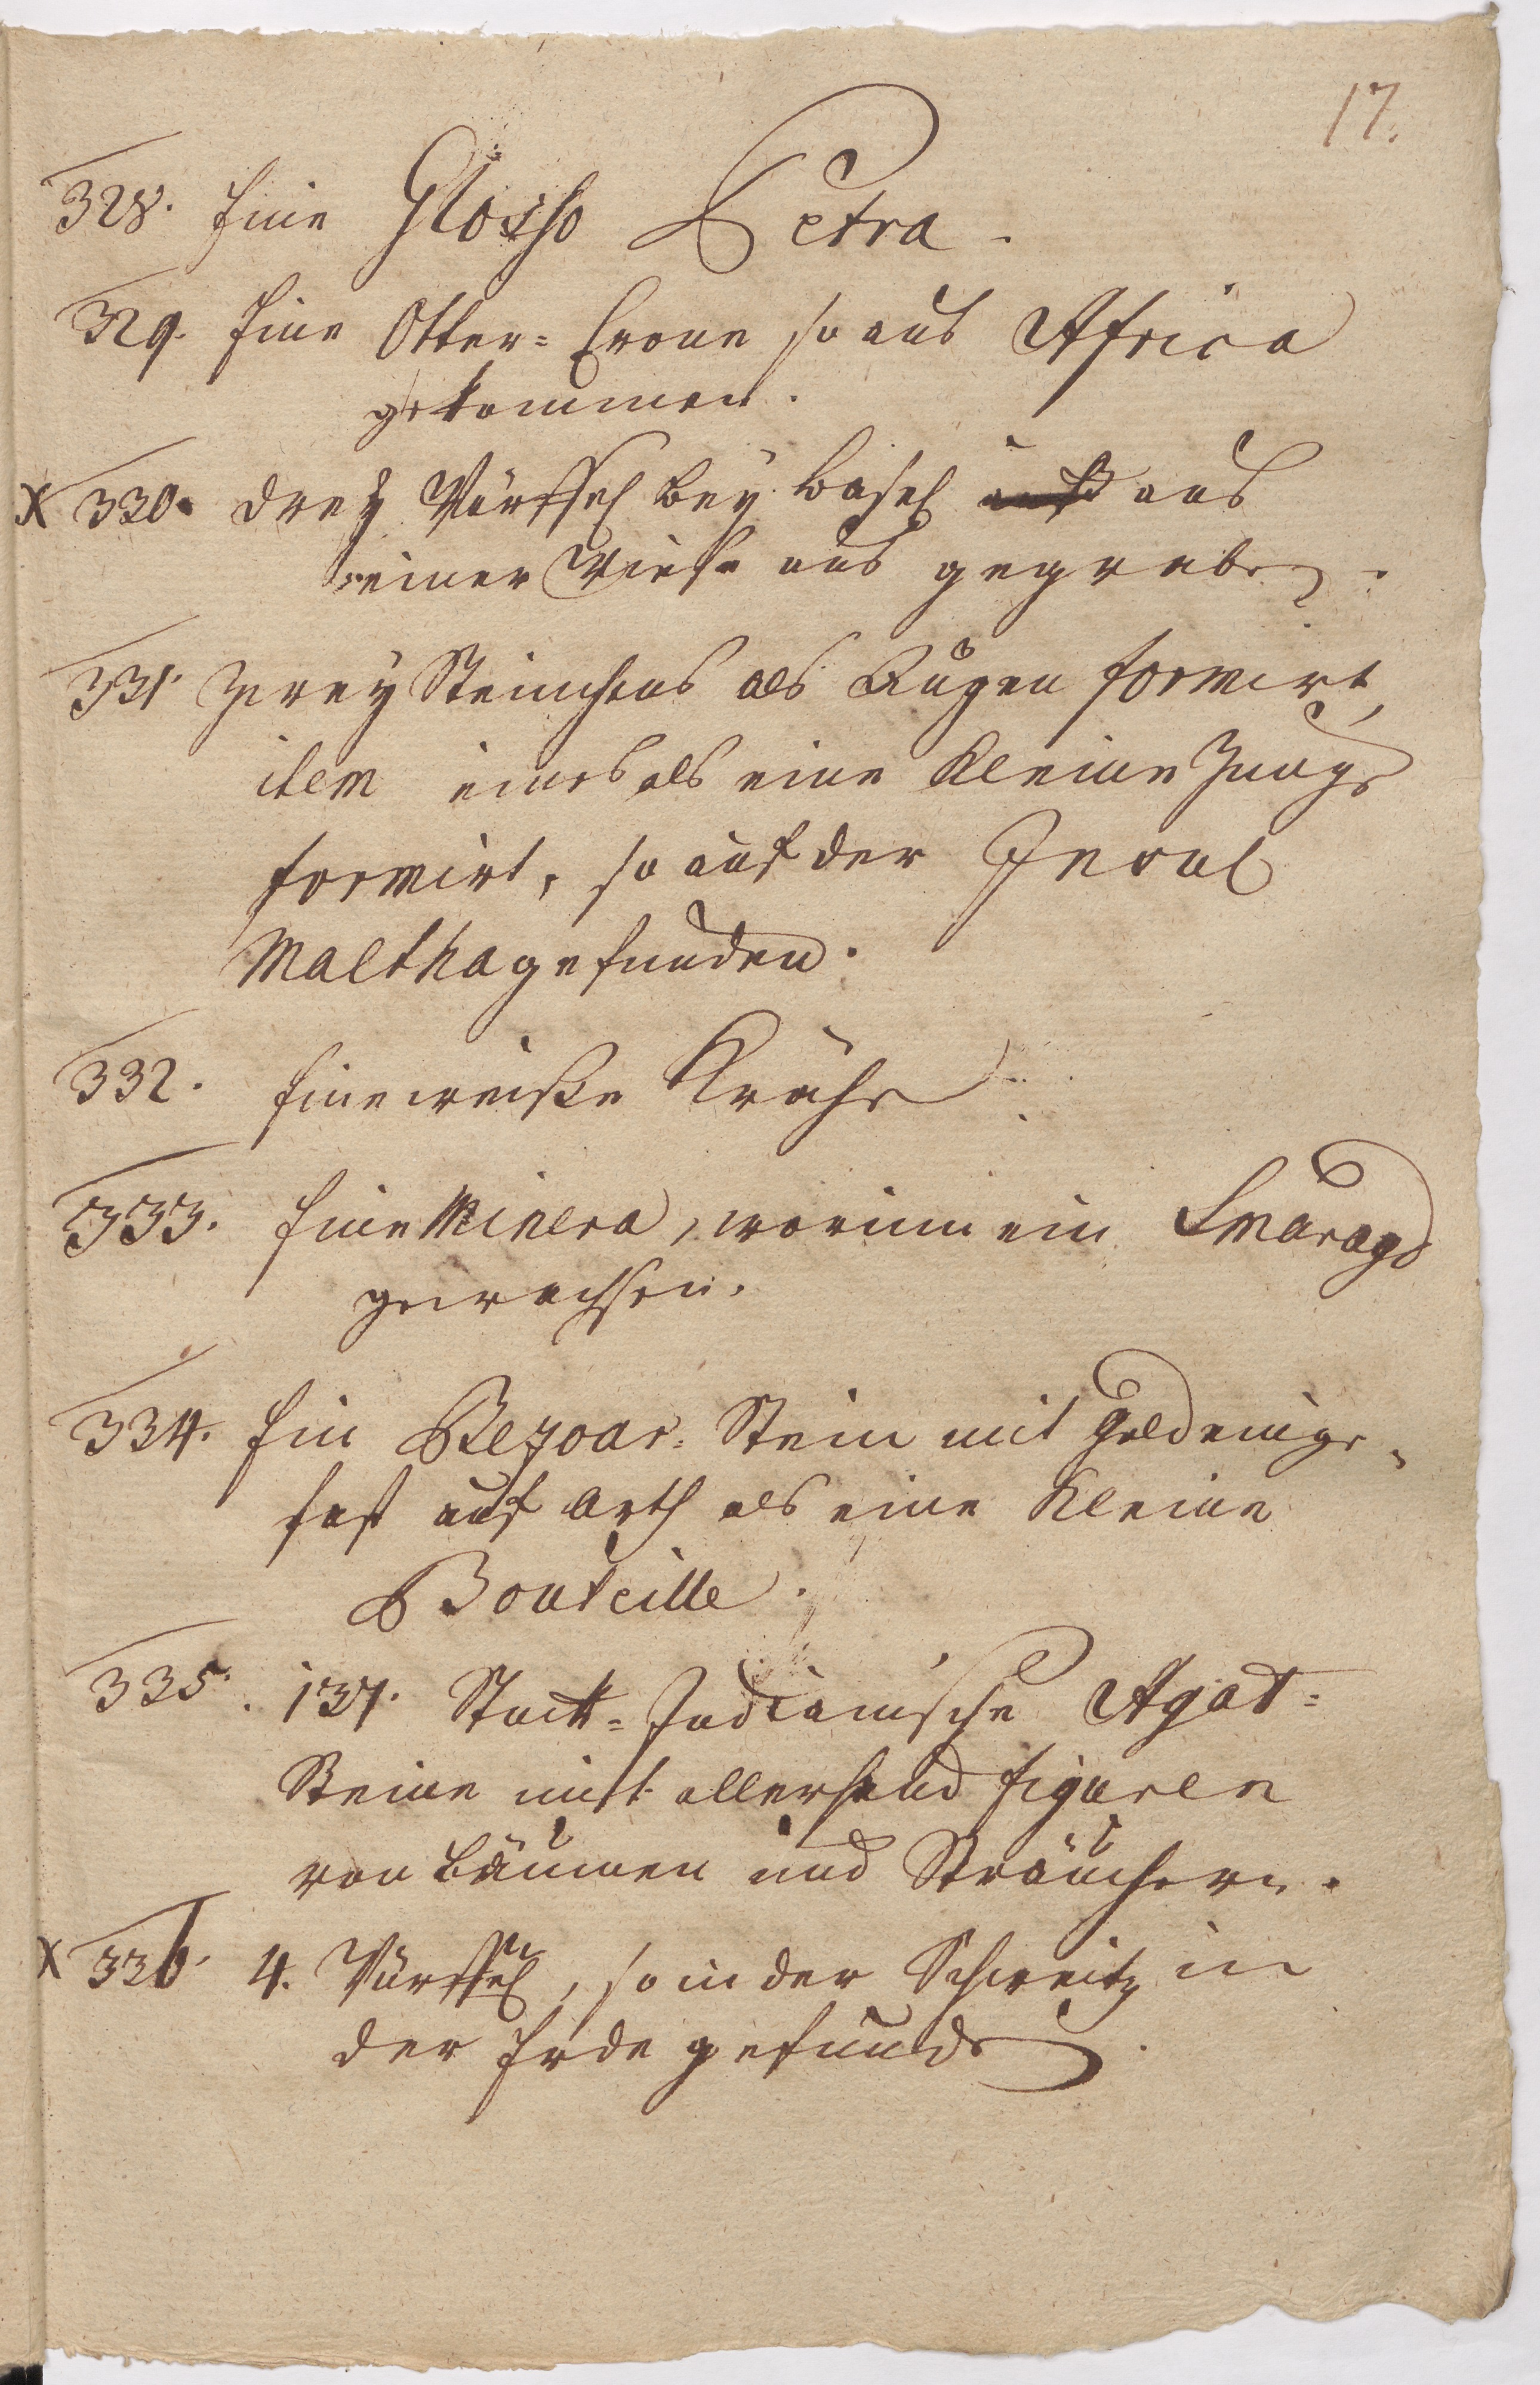 17.
328. Eine Glosso Petra.
329. Eine Otter= Crone so aus Africa
gekommen.
x 330. drey Würffel bey Basel aus
einer Wiese aus gegraben.
331. Zwey Steinchens als Augen formirt,
item eines als eine kleine Zunge
formirt, so auf der Insul
Maltha gefunden.
332. Eine weiße Krähe
333. Eine Minera, worinn ein Smaragd
gewachsen.
334. Ein Bezoar= Stein mit Gold einge=
fast auf Arth als eine kleine
Bouteille.
335. 137. Stück= Indianische Agat=
Steine mit allerhand figuren
von Bäumen und Sträuchern.
x 336. 4. Würffel, so in der Schweitz in
der Erde gefunden.